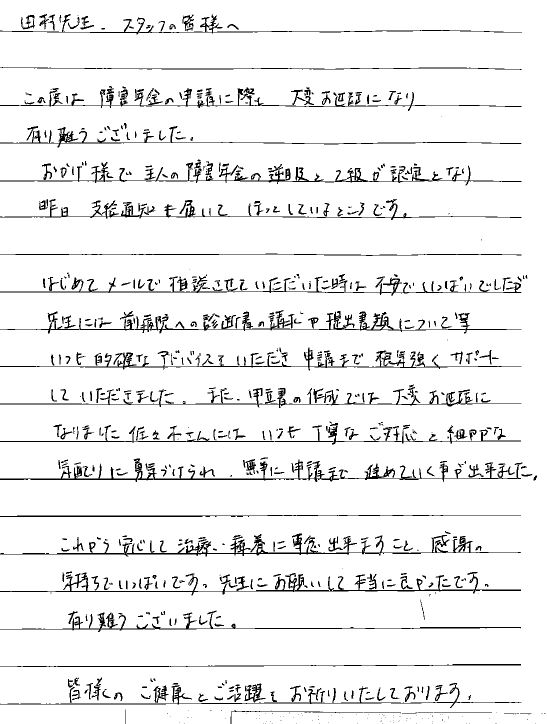 田村先生、スタッフの皆様へ
この度は 障害年金の申請に際し 大変お世話になり
有り難うございました。
おかげ様で 主人の障害年金の遡及と2級が認定となり
昨日 支給通知も届いて ほっとしているところです。
はじめてメールで相談させていただいた時は不安でいっぱいでしたが
先生には前病院への診断書の請求や提出書類について等
いつも的確なアドバイスをいただき申請まで根気強くサポート
していただきました。また、申立書の作成では大変お世話に
なりました佐々木さんには いつも丁寧なご対応と細やかな
気配りに勇気づけられ、無事に申請まで進めていく事が出来ました。
これから安心して治療・療養に専念出来ますこと、感謝の
気持ちでいっぱいです。先生にお願いして本当に良かったです。
有り難うございました。
皆様の ご健康とご活躍をお祈りいたしております。